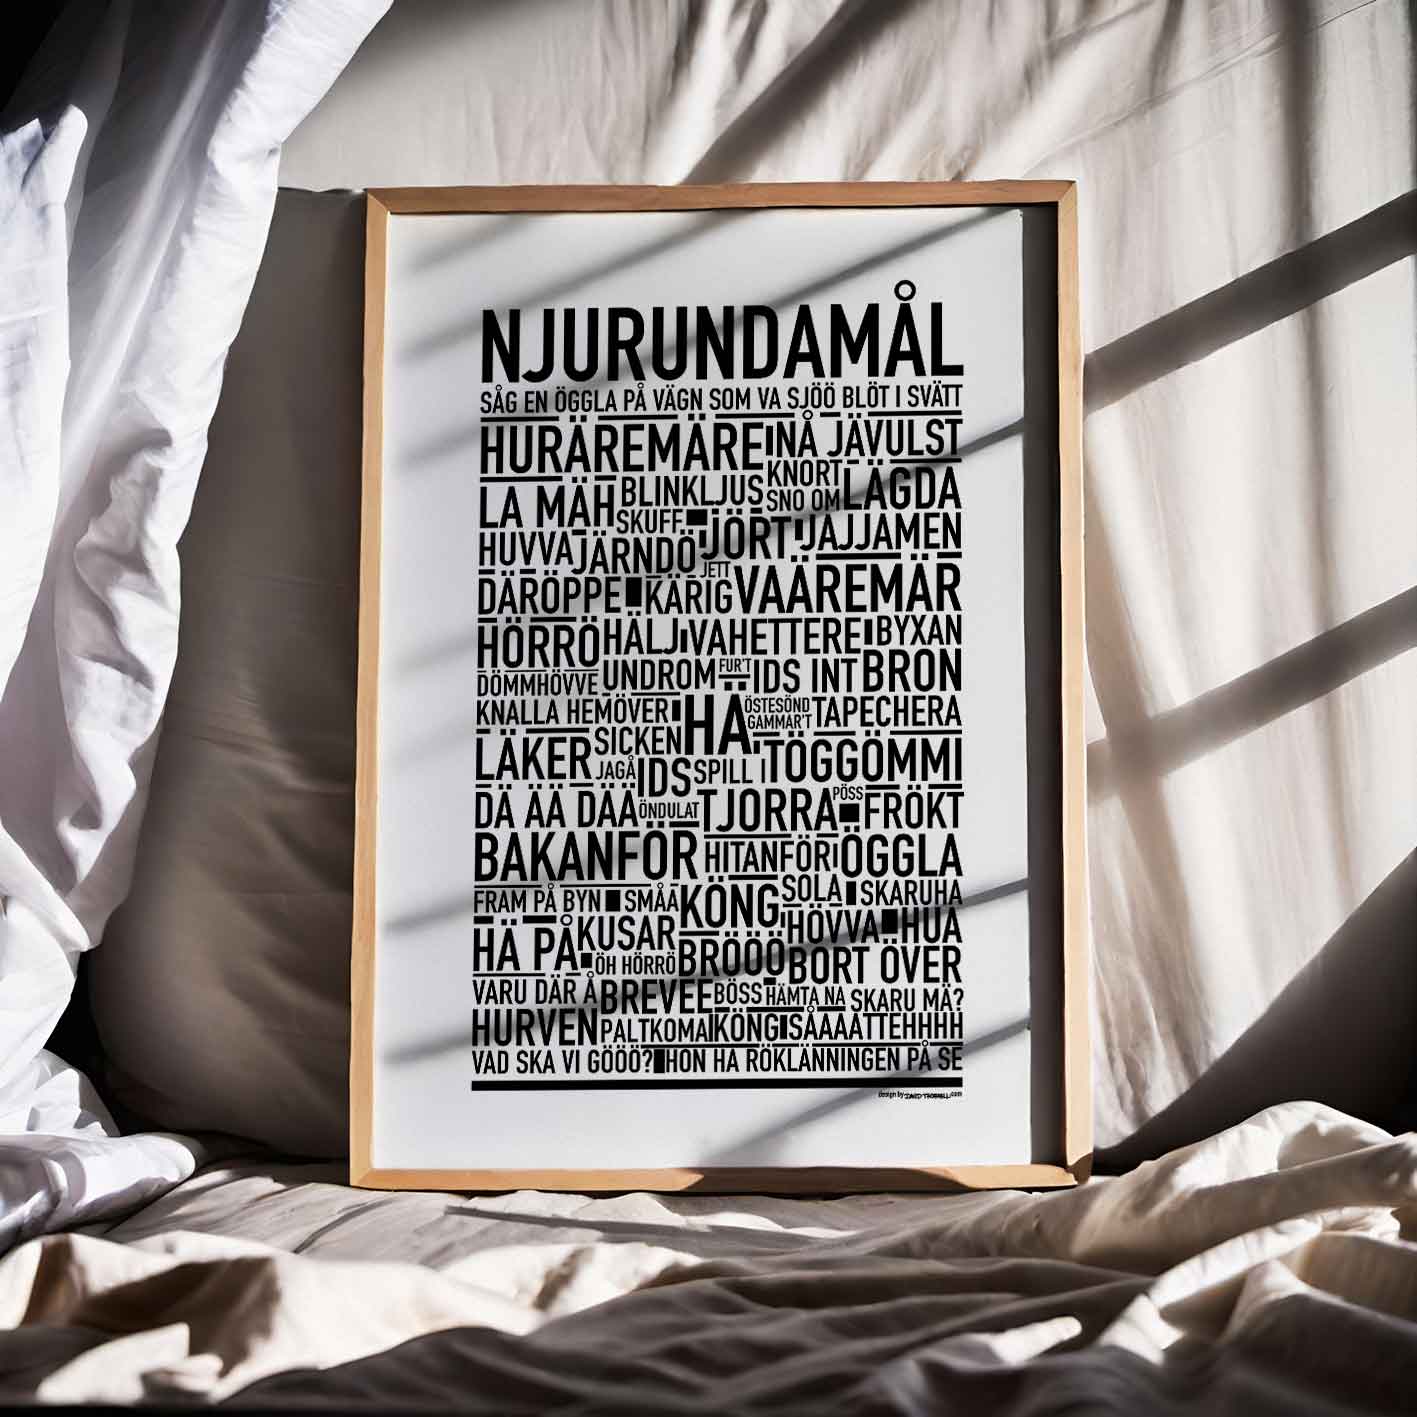 NJURUNDAMÅL
SÅG EN ÖGGLA PÅ VÄGN SOM VA SJÖÖ BLÖT I SVÄTT
HURÄREMÄRE NÅ JÄVULST
LA MÄH BLINKLJUS KNORT SNO OM LÄGDA
SKUFF
HUVVA JÄRNDÖ JÖRT JAJJAMEN
JETT
DÄRÖPPE KÄRIG VAÄREMÄR
HÖRRÖ HÄLJ VAHETTERE BYXAN
DÖMMHÖVVE UNDROM FUR'T IDS INT BRON
KNALLA HEMÖVER HÄ ÖSTESÖND GAMMÄR'T TAPECHERA
LÄKER SICKEN TÖGGÖMMI
JAGÅ IDS SPILL I
DÄ ÄÄ DÄÄ ÖNDULAT TJORRA PÖSS FRÖKT
BAKANFÖR HITANFÖR ÖGGLA
FRAM PÅ BYN SMÅÄ KÖNG SOLA SKARUHA
HÄ PÅ KUSAR HÖVVA HUA
ÖH HÖRRÖ BRÖÖÖ BORT ÖVER
VARU DÄR Å BREVEE BÖSS HÄMTA NA SKARU MÄ?
HURVEN PALTKOMA KÖNG SÅÅAATTEHHHH
VAD SKA VI GÖÖÖ? HON HA RÖKLÄNNINGEN PÅ SE
design by DAVID TROBRELL.com